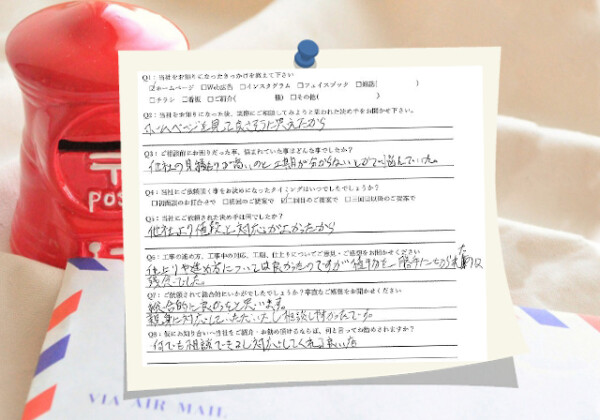 Q1：当社をお知りになったきっかけを教えて下さい
☑ホームページ □Web広告 □インスタグラム □フェイスブック □雑誌( )
□チラシ □看板 □ご紹介( 様) □その他( )
Q2：当社をお知りになった後、実際にご相談してみようと思われた決め手をお聞かせ下さい。
ホームページを見て良さそうに思えたから
Q3：ご相談前にお困りだった事、悩まれていた事はどんな事でしたか？
他社の見積もりが高いのと工期が分からないとかで悩んでいた。
Q4：当社にご依頼頂く事をお決めになったタイミングはいつでしたでしょうか？
□初回のご提案で ☑二回目のご提案で □三回目以降のご提案で
Q5：当社にご依頼された決め手は何でしたか？
他社より値段と対応がよかったから
Q6：工事の進め方、工事中の対応、工期、仕上りについてご意見・ご感想をお聞かせください
仕上りや進め方については良かったのですが
残念でした。
Q7：ご依頼されて総合的にいかがでしたでしょうか？率直なご感想をお聞かせください
総合的に良かったと思います。
親身に対応していただいたし相談し
Q8：仮にお知り合いへ当社をご紹介・お勧め頂けるならば、何と言ってお勧めされますか？
何でも相談できるし対応してくれる
POS
VIA AIR MAIL